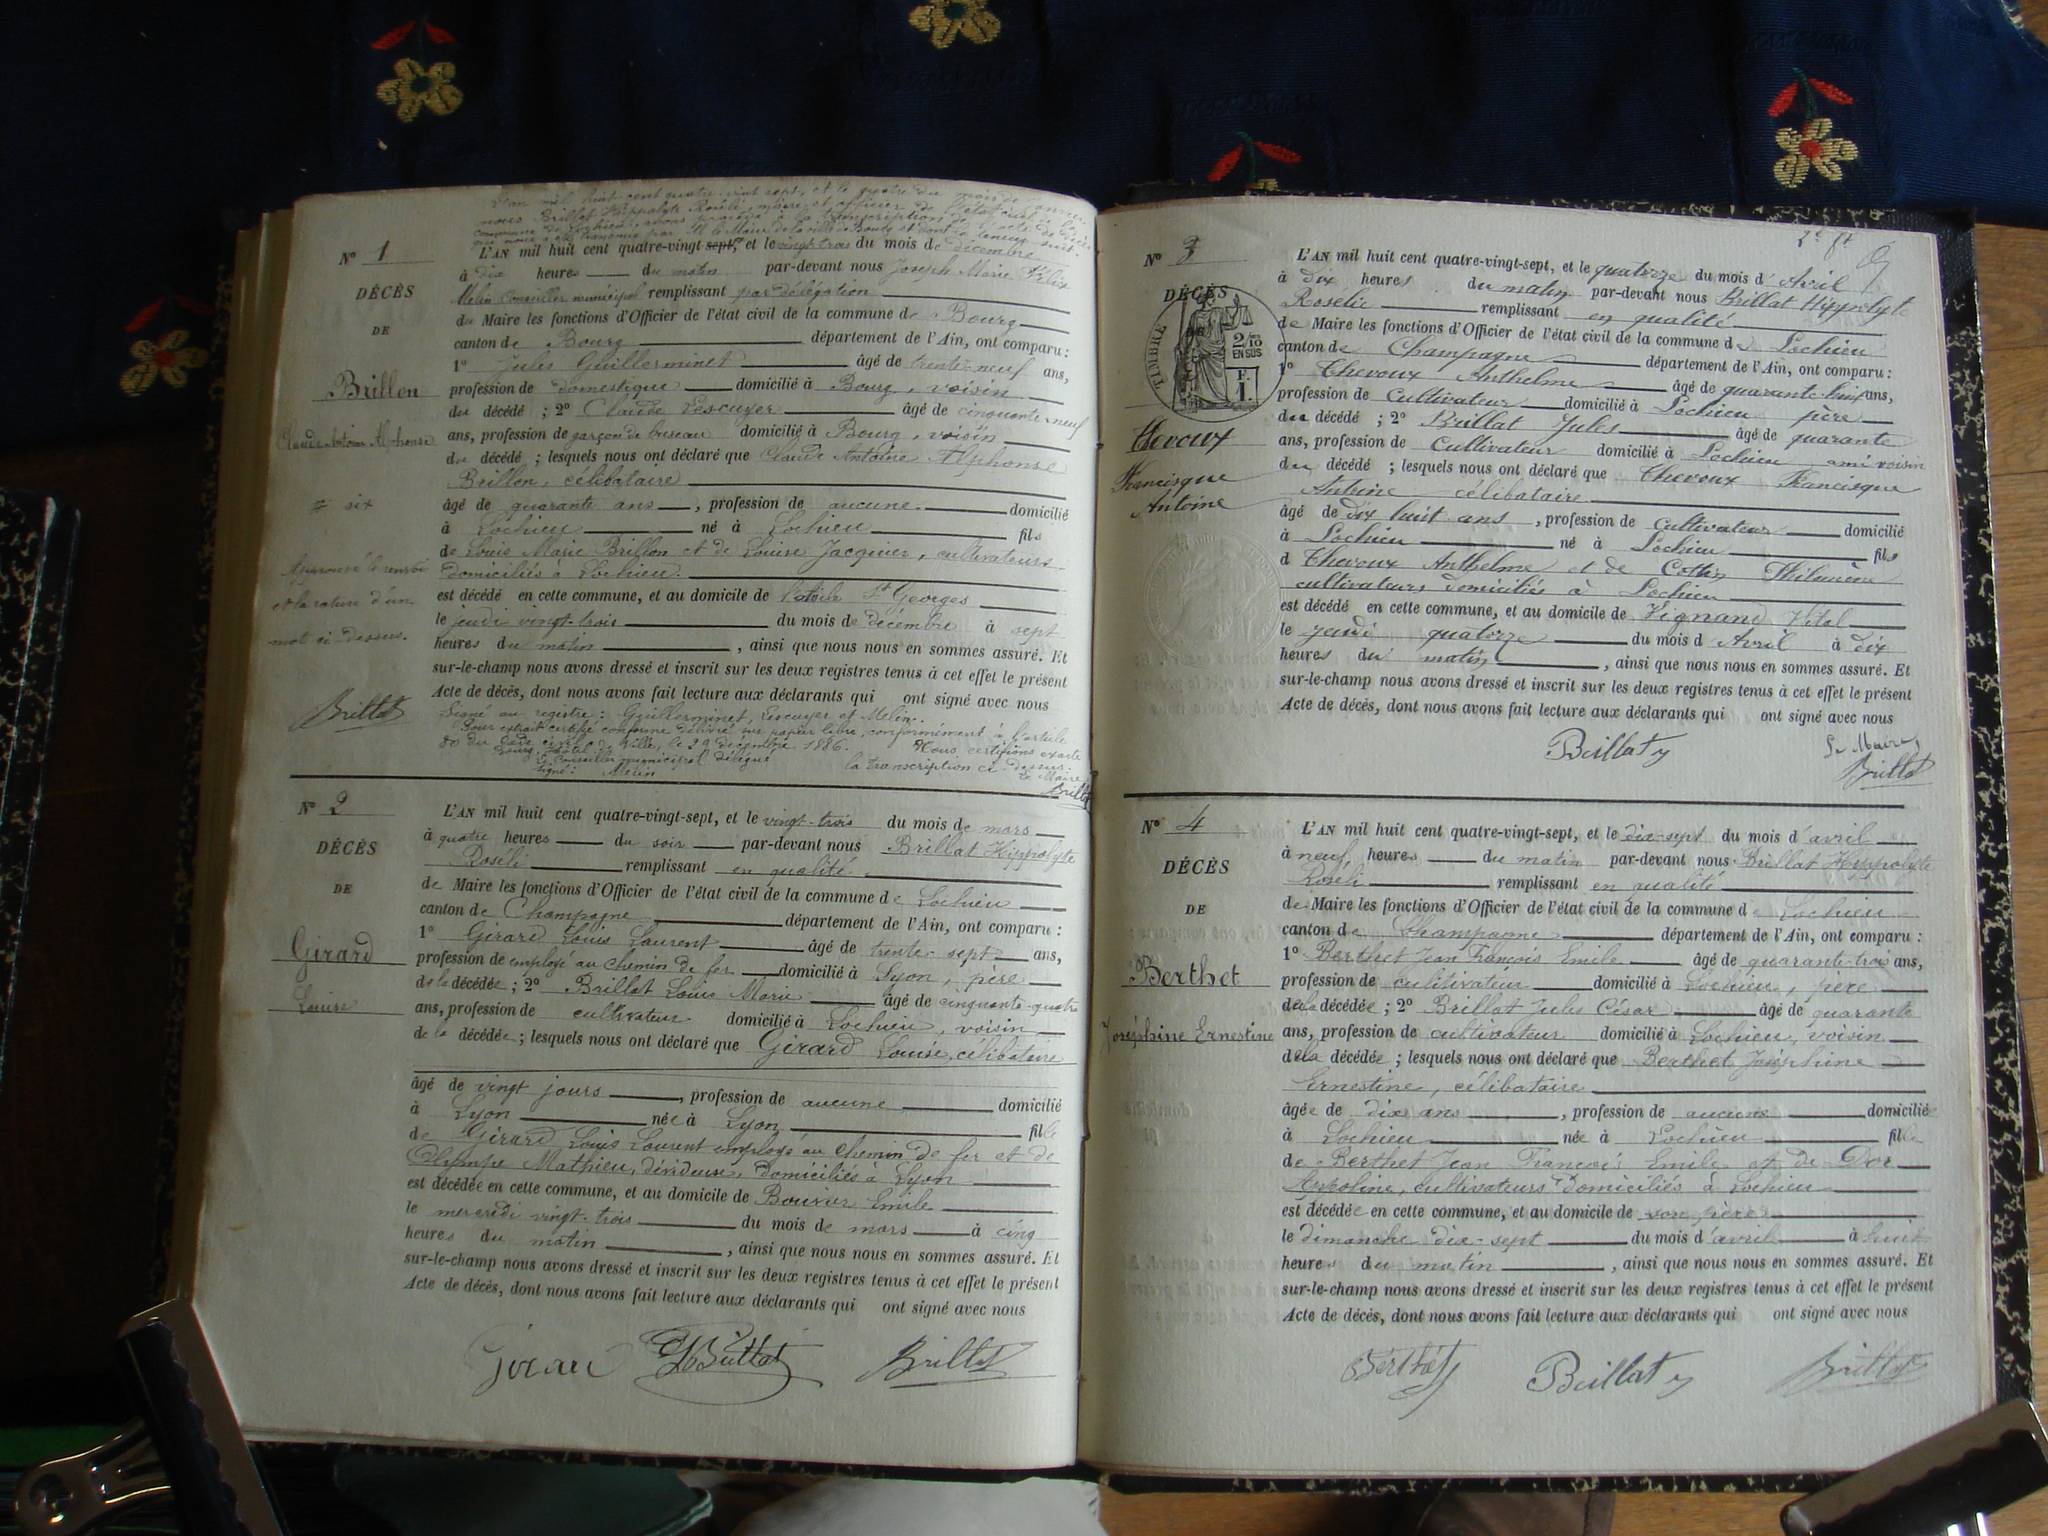 L'an mil huit cent quatre-vingt sept, et le quatre du mois de Janvier
nous Brillat Hippolyte Roséli, maire et officier de l'état civil de la
commune de Lochieu, avons procédé à la transcription de l'acte de décès
qui nous a été transmis par M. le Maire de la ville de Bourg et dont la teneur suit.
N° 1
DÉCÈS
DE
Brillon
Claude Antoine Alphonse
≠ six
Approuvé le renvoi
et la rature d'un
mot ci-dessus.
Brillat
L'AN mil huit cent quatre-vingt-sept≠, et le vingt-trois du mois de décembre
à dix heures du matin par-devant nous Joseph Marie Félix
Melin Conseiller municipal remplissant par délégation
du Maire les fonctions d'Officier de l'état civil de la commune de Bourg
canton de Bourg département de l'Ain, ont comparu :
1° Jules Guillerminet âgé de trente-neuf ans,
profession de domestique domicilié à Bourg, voisin
du décédé ; 2° Claude Lescuyer âgé de cinquante-neuf
ans, profession de garçon de bureau domicilié à Bourg, voisin
du décédé ; lesquels nous ont déclaré que Claude Antoine Alphonse
Brillon, célibataire
âgé de quarante ans, profession de aucune domicilié
à Lochieu né à Lochieu fils
de Louis Marie Brillon et de Louise Jacquier, cultivateurs
domiciliés à Lochieu.
est décédé en cette commune, et au domicile de l'asile St Georges
le jeudi vingt-trois du mois de décembre à sept
heures du matin, ainsi que nous nous en sommes assuré. Et
sur-le-champ nous avons dressé et inscrit sur les deux registres tenus à cet effet le présent
Acte de décès, dont nous avons fait lecture aux déclarants qui ont signé avec nous
Signé au registre : Guillerminet, Lescuyer et Melin.
Pour extrait certifié conforme délivré sur papier libre, conformément à l'article
80 du Code civil.
Bourg, Hôtel de Ville, le 29 décembre 1886. Nous certifions exacte
Le Conseiller municipal délégué la transcription ci-dessus.
Signé : Melin Le Maire
Brillat
N° 2
DÉCÈS
DE
Girard
Louise
L'AN mil huit cent quatre-vingt-sept, et le vingt-trois du mois de mars
à quatre heures du soir par-devant nous Brillat Hippolyte
Roséli remplissant en qualité
de Maire les fonctions d'Officier de l'état civil de la commune de Lochieu
canton de Champagne département de l'Ain, ont comparu :
1° Girard Louis Laurent âgé de trente-sept ans,
profession de employé au chemin de fer domicilié à Lyon, père
de la décédée ; 2° Brillat Louis Marie âgé de cinquante-quatre
ans, profession de cultivateur domicilié à Lochieu, voisin
de la décédée ; lesquels nous ont déclaré que Girard Louise, célibataire
âgé de vingt jours, profession de aucune domicilié
à Lyon née à Lyon fille
de Girard Louis Laurent employé au chemin de fer et de
Olympe Mathieu, dévideuse, domiciliés à Lyon
est décédée en cette commune, et au domicile de Bouvier Emile
le mercredi vingt-trois du mois de mars à cinq
heures du matin, ainsi que nous nous en sommes assuré. Et
sur-le-champ nous avons dressé et inscrit sur les deux registres tenus à cet effet le présent
Acte de décès, dont nous avons fait lecture aux déclarants qui ont signé avec nous
Girard Brillat Brillat
N° 3
DÉCÈS
TIMBRE
2/10 EN SUS
F. 1.
Thevoux
Francisque
Antoine
L'AN mil huit cent quatre-vingt-sept, et le quatorze du mois d'Avril
à dix heures du matin par-devant nous Brillat Hippolyte
Roselie remplissant en qualité
de Maire les fonctions d'Officier de l'état civil de la commune de Lochieu
canton de Champagne département de l'Ain, ont comparu :
1° Thevoux Anthelme âgé de quarante-huit ans,
profession de Cultivateur domicilié à Lochieu père
du décédé ; 2° Brillat Jules âgé de quarante
ans, profession de Cultivateur domicilié à Lochieu ami voisin
du décédé ; lesquels nous ont déclaré que Thevoux Francisque
Antoine célibataire
âgé de dix huit ans, profession de Cultivateur domicilié
à Lochieu né à Lochieu fils
d Thevoux Anthelme et de Cottin
cultivateurs domiciliés à Lochieu
est décédé en cette commune, et au domicile de Vignand Vital
le jeudi quatorze du mois d'Avril à dix
heures du matin, ainsi que nous nous en sommes assuré. Et
sur-le-champ nous avons dressé et inscrit sur les deux registres tenus à cet effet le présent
Acte de décès, dont nous avons fait lecture aux déclarants qui ont signé avec nous
Brillat Le Maire
Brillat
N° 4
DÉCÈS
DE
Berthet
Joséphine Ernestine
L'AN mil huit cent quatre-vingt-sept, et le dix-sept du mois d'avril
à neuf heures du matin par-devant nous Brillat Hippolyte
Roséli remplissant en qualité
de Maire les fonctions d'Officier de l'état civil de la commune de Lochieu
canton de Champagne département de l'Ain, ont comparu :
1° Berthet Jean François Emile âgé de quarante-trois ans,
profession de cultivateur domicilié à Lochieu, père
de la décédée ; 2° Brillat Jules César âgé de quarante
ans, profession de cultivateur domicilié à Lochieu, voisin
de la décédée ; lesquels nous ont déclaré que Berthet Joséphine
Ernestine, célibataire
âgée de dix ans, profession de aucune domiciliée
à Lochieu née à Lochieu fille
de Berthet Jean François Emile et de Dor
Hypoline, cultivateurs domiciliés à Lochieu
est décédée en cette commune, et au domicile de son père
le dimanche dix-sept du mois d'avril à huit
heures du matin, ainsi que nous nous en sommes assuré. Et
sur-le-champ nous avons dressé et inscrit sur les deux registres tenus à cet effet le présent
Acte de décès, dont nous avons fait lecture aux déclarants qui ont signé avec nous
Berthet Brillat Brillat